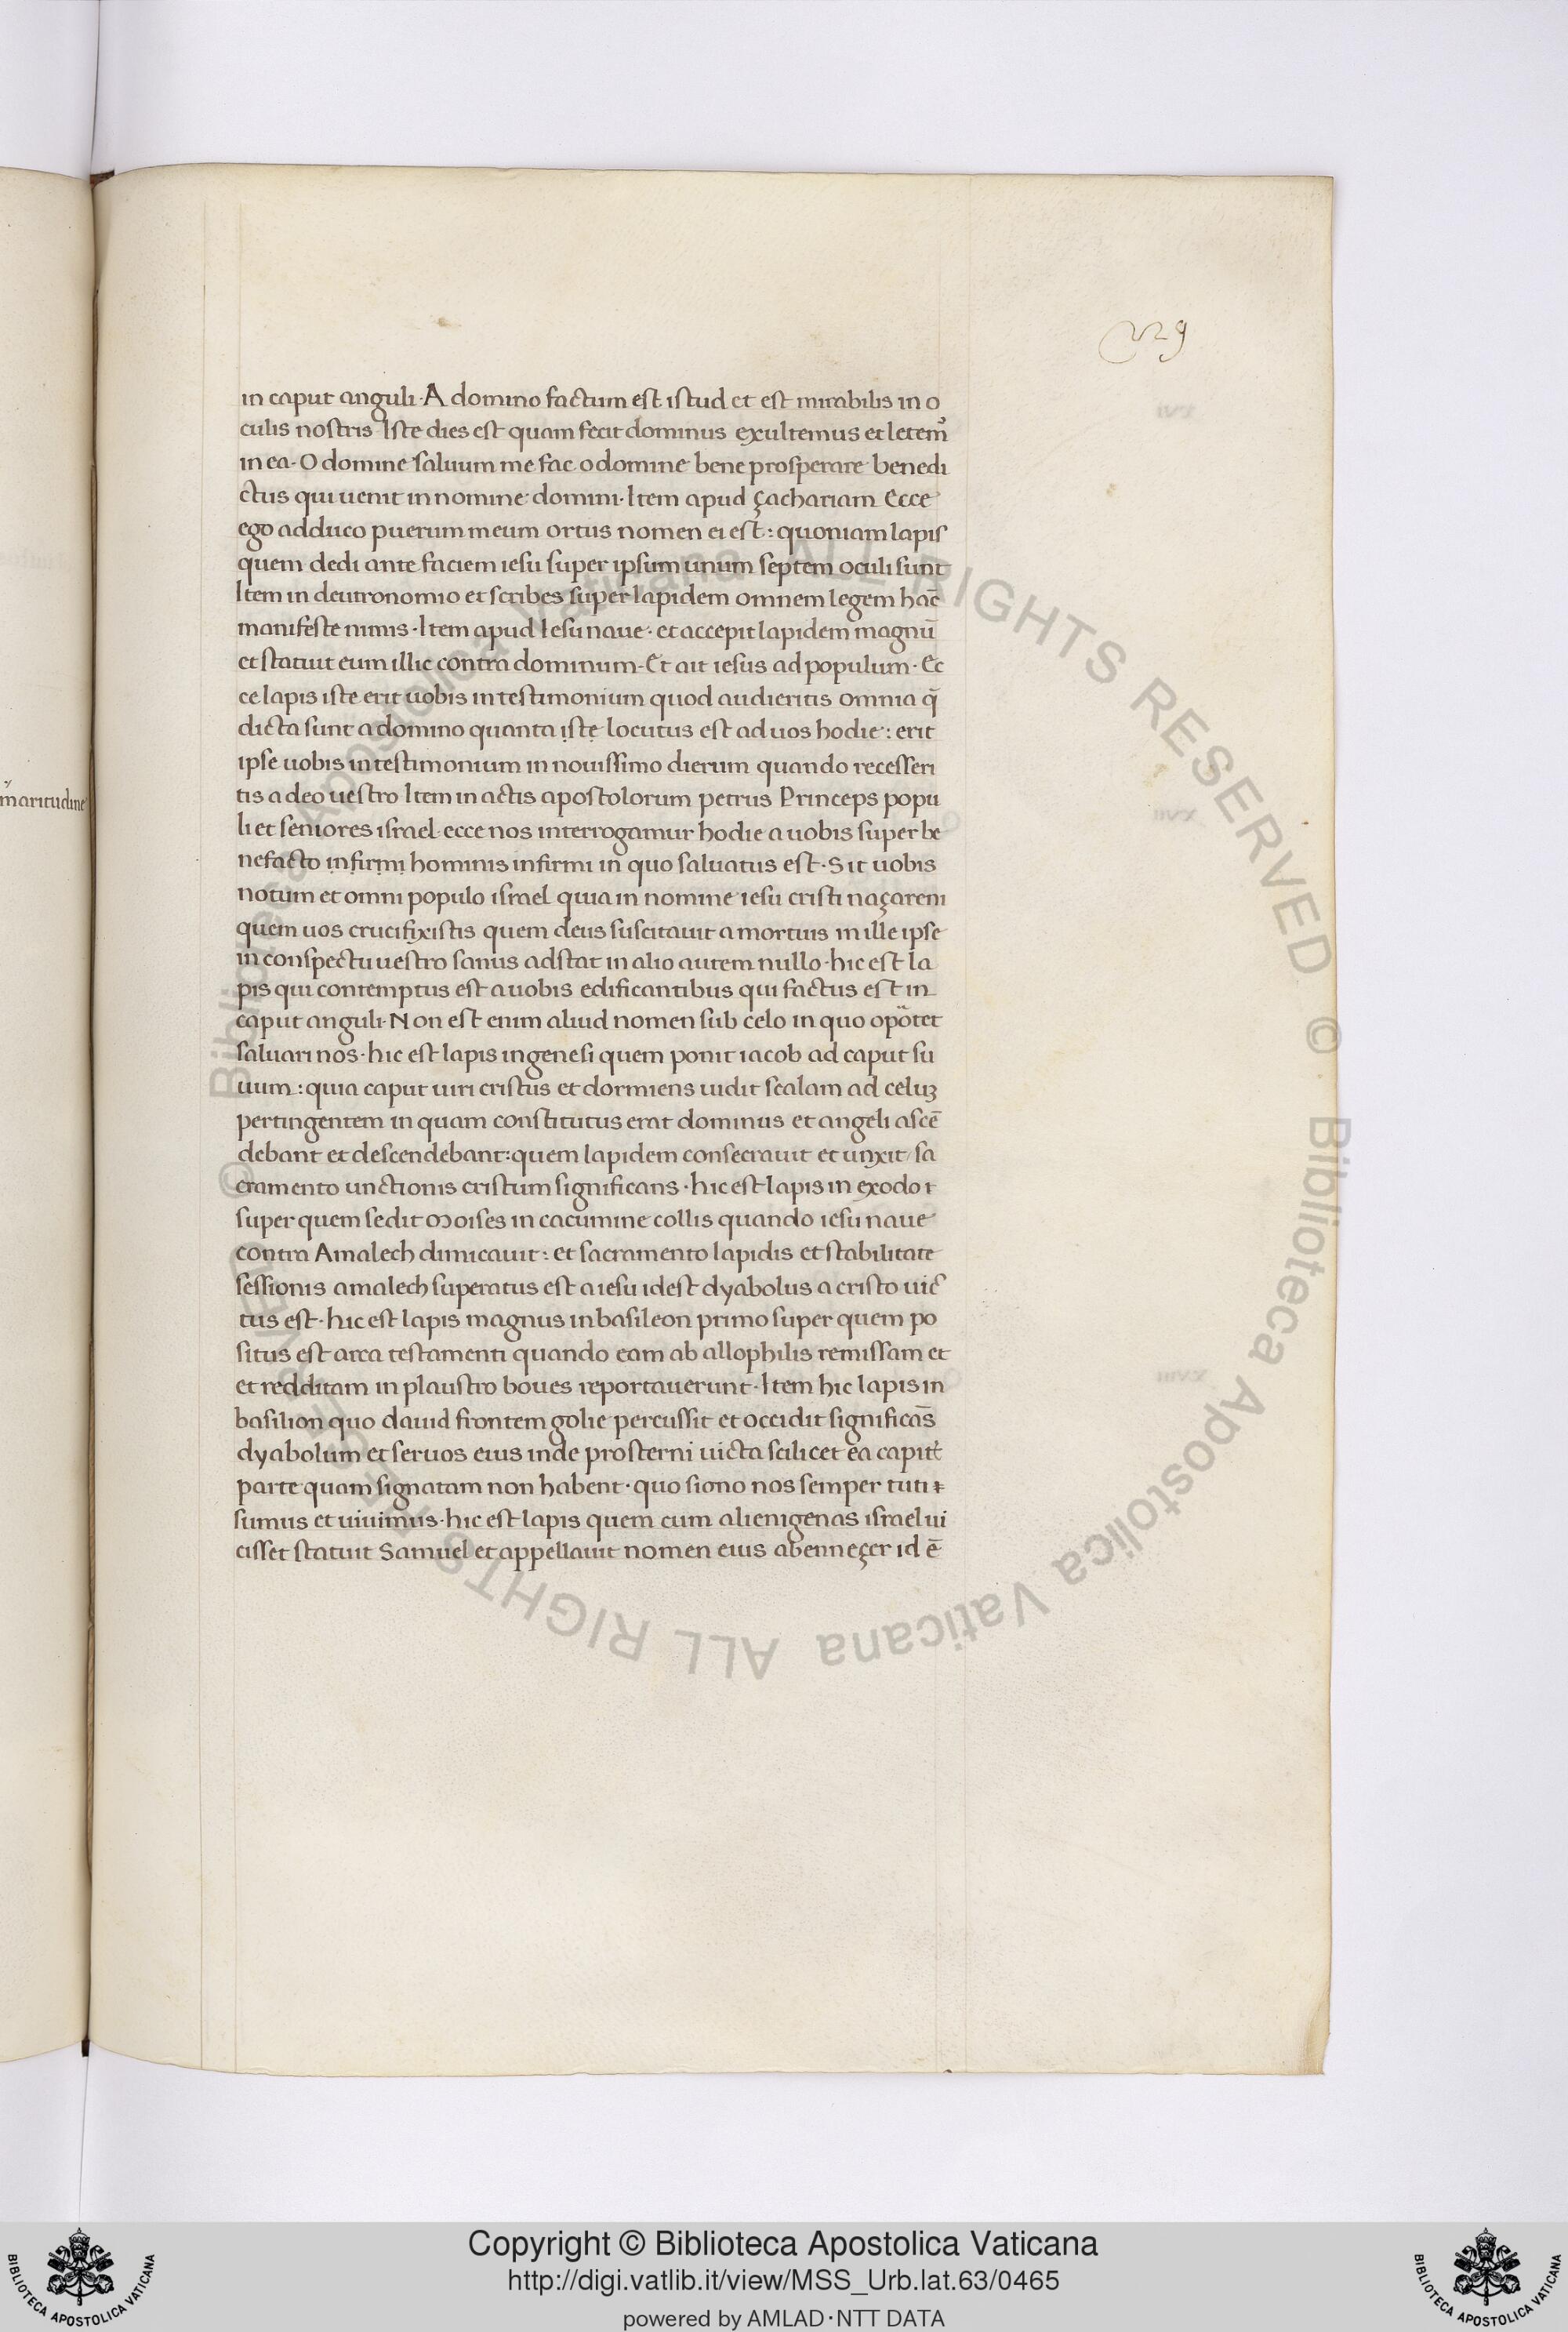 229
in caput anguli· A domino factum est istud et est mirabilis in o
culis nostris Iste dies est quam fecit dominus exultemus et letem᷒
in ea· O domine saluum me fac o domine bene prosperare benedi
ctus qui uenit in nomine domini· Item apud çachariam Ecce
ego adduco puerum meum ortus nomen ei est: quoniam lapis
quem dedi ante faciem iesu super ipsum unum septem oculi sunt
Item in deutronomio et scribes super lapidem omnem legem hāc
manifeste nimis· Item apud Iesu naue· et accepit lapidem magnū
et statuit eum illic contra dominum· Et ait iesus ad populum· Ec
ce lapis iste erit uobis in testimonium quod audieritis omnia q̄
dicta sunt a domino quanta iste locutus est ad uos hodie: erit
ipse uobis in testimonium in nouissimo dierum quando recesseri
tis a deo uestro Item in actis apostolorum petrus Princeps popu
li et seniores israel ecce nos interrogamur hodie a uobis super be
nefacto infirmi hominis infirmi in quo saluatus est· Sit uobis
notum et omni populo israel quia in nomine iesu cristi naçareni
quem uos crucifixistis quem deus suscitauit a mortuis in ille ipse
in conspectu uestro sanus adstat in alio autem nullo· hic est la
pis qui contemptus est a uobis edificantibus qui factus est in
caput anguli· Non est enim aliud nomen sub celo in quo opōtet
saluari nos· hic est lapis in genesi quem ponit iacob ad caput su
uum: quia caput uiri cristus et dormiens uidit scalam ad celuꝫ
pertingentem in quam constitutus erat dominus et angeli ascē
debant et descendebant: quem lapidem consecrauit et unxit sa
cramento unctionis cristum significans· hic est lapis in exodo
super quem sedit Moises in cacumine collis quando iesu naue
contra Amalech dimicauit: et sacramento lapidis et stabilitate
sessionis amalech superatus est a iesu idest dyabolus a cristo uic
tus est· hic est lapis magnus in basileon primo super quem po
situs est arca testamenti quando eam ab allophilis remissam et
et redditam in plaustro boues reportauerunt· Item hic lapis in
basilion quo dauid frontem golie percussit et occidit significās
dyabolum et seruos eius inde prosterni uicta scilicet ea capit᷒
parte quam signatam non habent· quo signo nos semper tuti
sumus et uiuimus· hic est lapis quem cum alienigenas israel ui
cisset statuit Samuel et appellauit nomen eius abenneçer id ē
m̄aritudine
© Biblioteca Apostolica Vaticana ALL RIGHTS RESERVED © Biblioteca Apostolica Vaticana ALL RIGHTS RESERVED
Copyright © Biblioteca Apostolica Vaticana
http://digi.vatlib.it/view/MSS_Urb.lat.63/0465
powered by AMLAD·NTT DATA
BIBLIOTECA APOSTOLICA VATICANA
BIBLIOTECA APOSTOLICA VATICANA